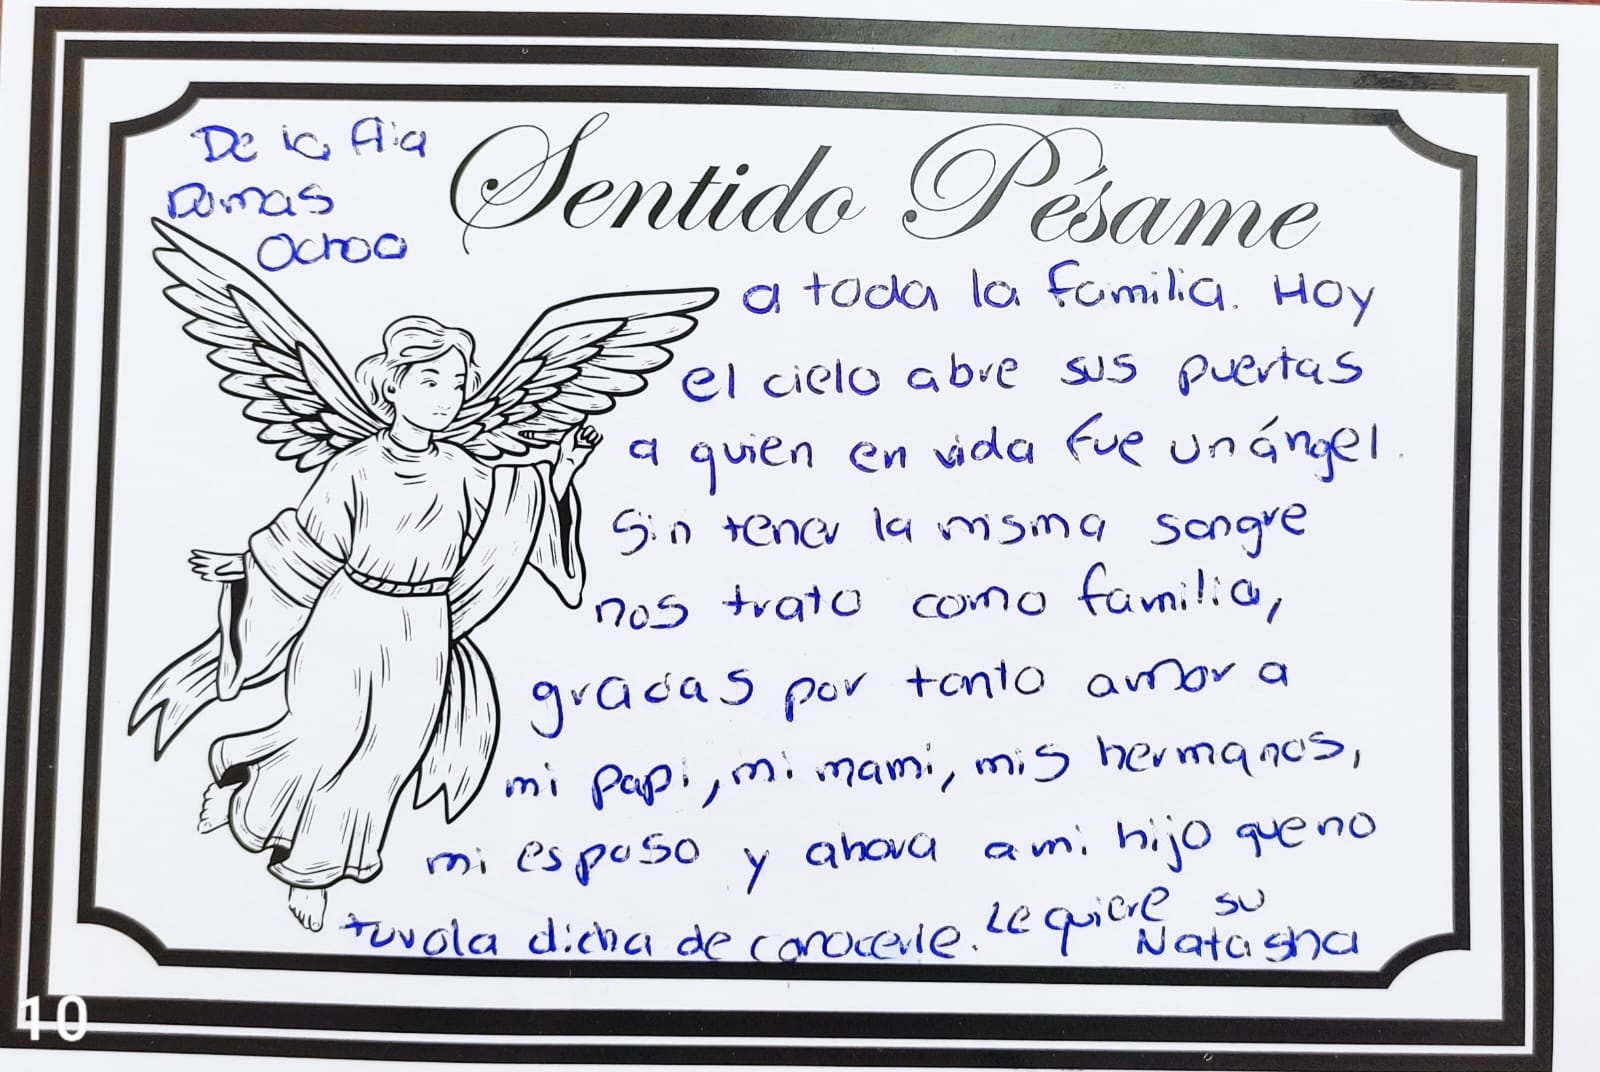 De la Flia
Dumas
Ochoa
Sentido Pésame
a toda la familia. Hoy
el cielo abre sus puertas
a quien en vida fue un ángel.
Sin tener la misma sangre
nos trato como familia,
gracias por tanto amor a
mi papi, mi mami, mis hermanos,
mi esposo y ahora a mi hijo que no
tuvo la dicha de conocerle. Le quiere su
Natasha
10